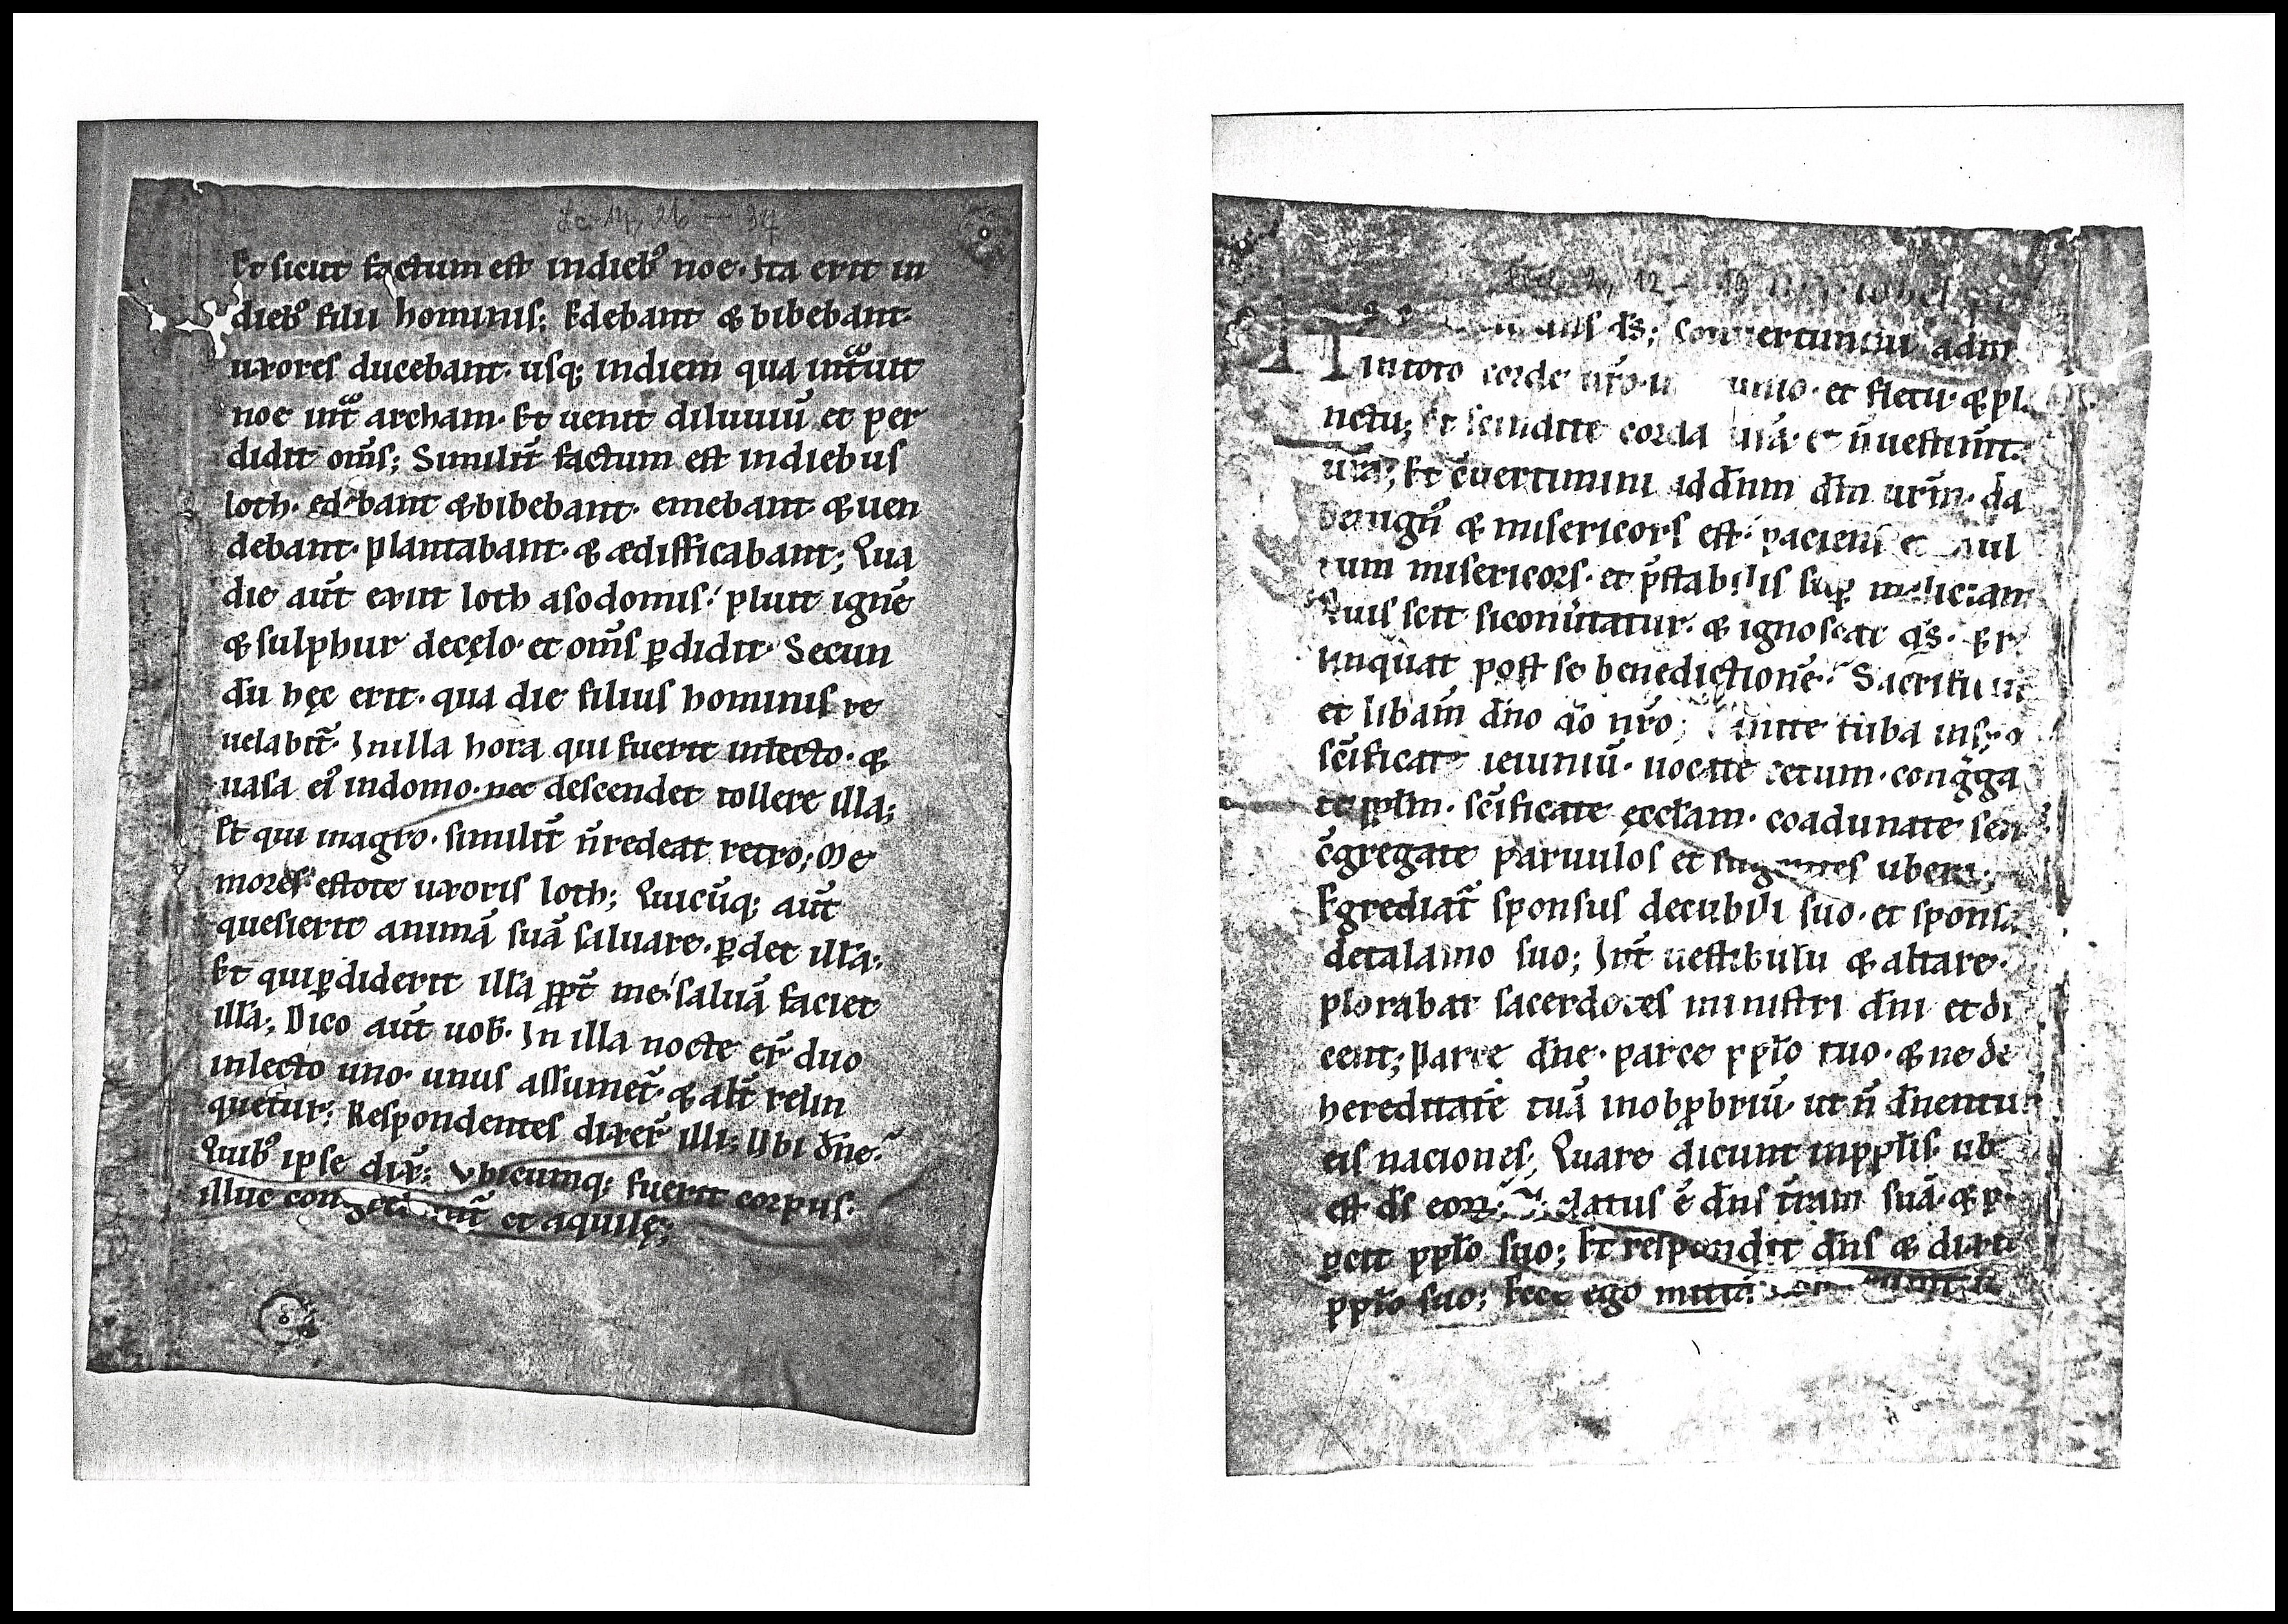 Lc 17, 26 — 37
Et sicut factum est indieb⁹ noe· Ita erit in
dieb⁹ filii hominis; Edebant & bibebant·
uxores ducebant· usq; indiem qua int͛uit
noe int͛ archam· Et uenit diluuiū et per
didit om̄s; Similit̄ factum est indiebus
loth· edebant &bibebant· emebant· & uen
debant· plantabant· & ædifficabant; Qua
die aūt exiit loth asodomis· pluit ignē
& sulphur decęlo· et om̄s ꝑdidit· Secun
dū hęc erit· qua die filius hominis re
uelabit̄· Inilla hora qui fuerit intecto· &
uasa ei⁹ indomo· nec descendet tollere illa;
Et qui inagro· similit̄ n̄redeat retro; Me
mores estote uxoris loth; Quicūq; aūt
quesierit animā suā saluare· ꝑdet illā;
Et quiꝑdiderit illā ꝓpt̄ me· saluā faciet
illā; Dico aūt uob̄· In illa nocte er̄ duo
inlecto uno· unus assumet̄· & alt̄ relin
quetur; Respondentes dixer̄ illi; Ubi dn̄e·
Quib⁹ ipse dix̄; Vbicumq; fuerit corpus·
illuc et aquilę;
12 — 19
ds̄; Conuertimini adm̄
intoto corde ur̄o· et fletu· & pla
nctu; Et scindite corda ur̄a· et n̄uestim̄t
ur̄a; Et c̄uertimini addn̄m dm̄ ur̄m· q̄a
benign⁹ & misericors est· paciens et mul
tum misericors· et p̄stabilis suꝑ maliciam
Quis scit siconū̄tatur· & ignoscat ds̄· Et re
linquat post se benedictionē· Sacrificiū
et libam̄ dn̄o dō nr̄o; Canite tuba insyo
sc̄ificate ieiuniū· uocate cetum· congͣga
te pp̄lm· sc̄ificate ęccl̄am· coadunate sen
c̄gregate paruulos et sugentes ubera;
Egrediat̄ sponsus decubili suo· et sponsa
detalamo suo; Int̄ uestibulu & altare·
plorabāt sacerdotes ministri dn̄i et di
cent; Parce dn̄e· parce pp̄lo tuo· & ne des
hereditatē tuā inobꝓbriū· ut n̄ dn̄entur
eis naciones; Quare dicunt inpp̄lis· ubi
est ds̄ eoꝝ; Zelatus ē dn̄s t̄ram suā· & pe
ꝑcit pp̄lo suo; Et respondit dn̄s & dixit
pp̄lo suo; Ecce ego mittā